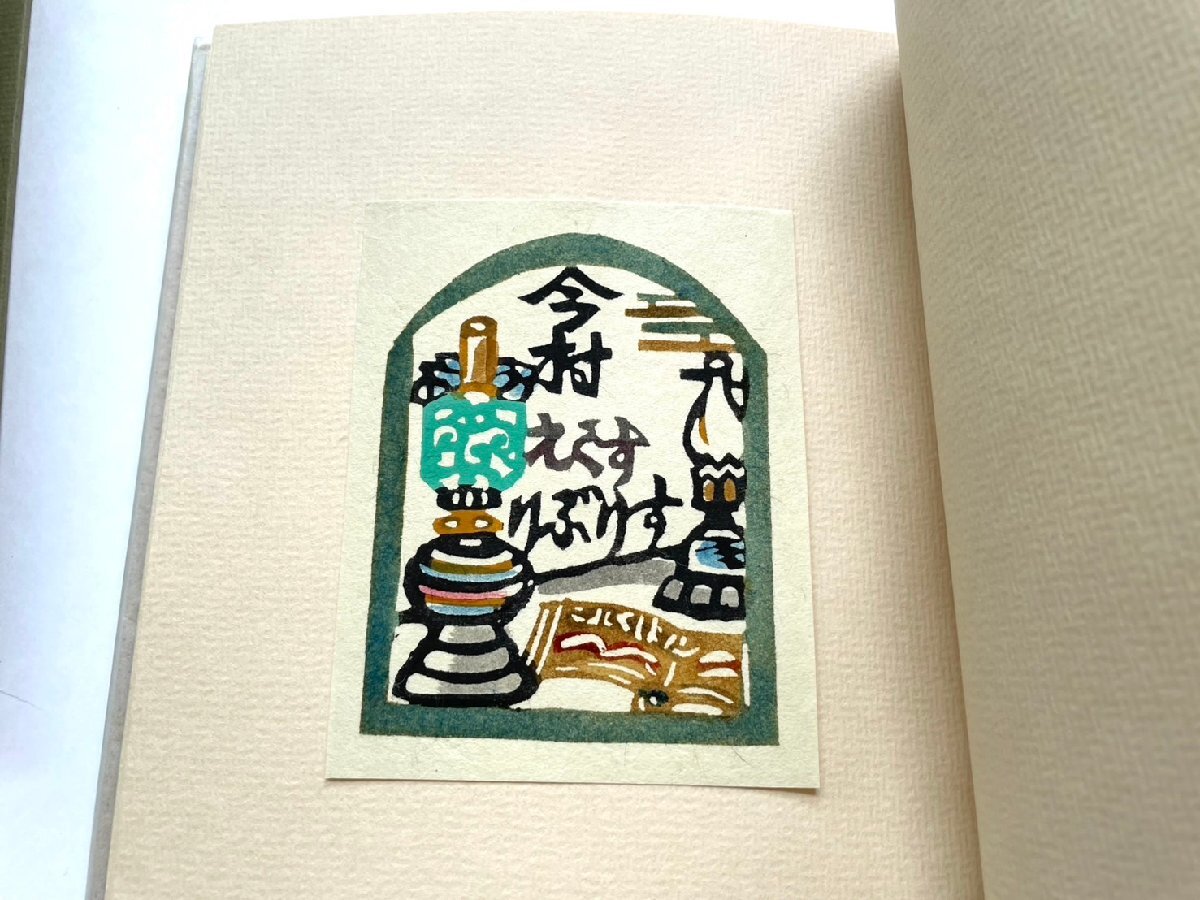 今村
えくす
りぶりす
これくしょん